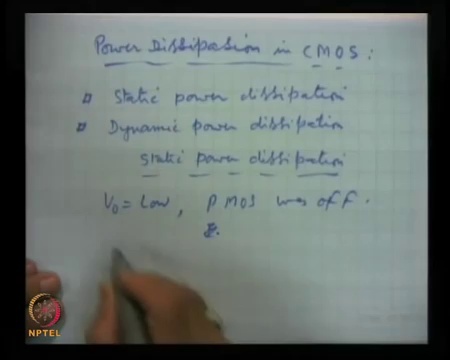 Power Dissipation in CMOS :
Static power dissipation
Dynamic power dissipation
Static power dissipation
V0 = Low, PMOS was off.
NPTEL